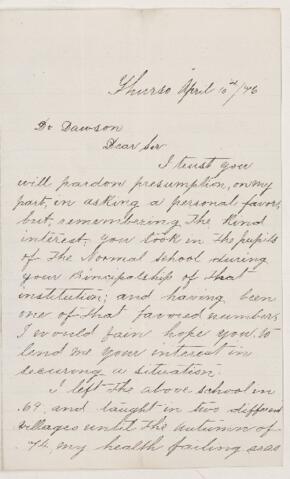 Thurso April 10th/76
Dr Dawson
Dear Sir
I trust you
will pardon presumption, on my
part, in asking a personal favor
but, remembering the kind
interest, you took in the pupils
of the Normal School during
your Principalship of that
institution; and having been
one of that favored number,
I would fain hope you, to
lend me your interest in
securing a situation.
I left the above school in
.69, and taught in two different
villages until the autumn of
.74, my health failing